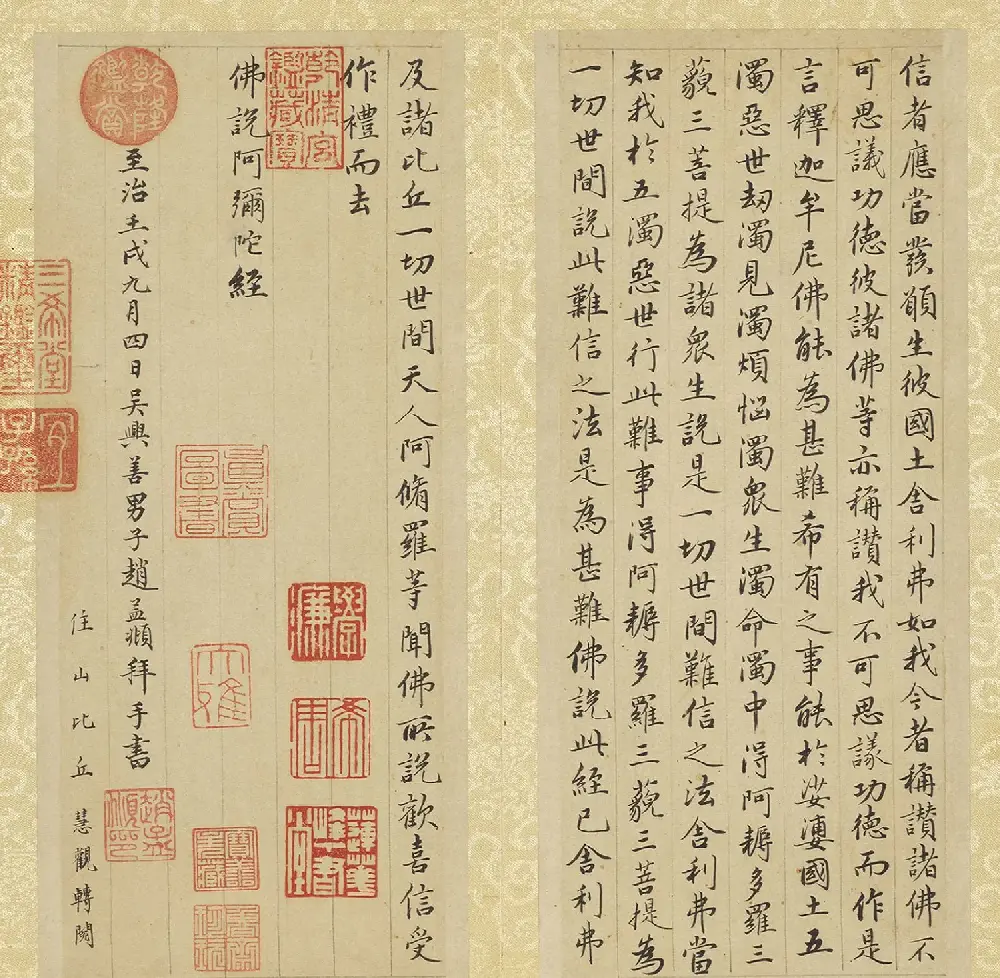 信者應當發願生彼國土舍利弗如我今者稱讃諸佛不
可思議功德彼諸佛等亦稱讃我不可思議功德而作是
言釋迦牟尼佛能為甚難希有之事能於娑婆國土五
濁惡世劫濁見濁煩惱濁眾生濁命濁中得阿耨多羅三
藐三菩提為諸眾生說是一切世間難信之法舍利弗當
知我於五濁惡世行此難事得阿耨多羅三藐三菩提為
一切世間說此難信之法是為甚難佛說此經已舍利弗
及諸比丘一切世間天人阿脩羅等聞佛所說歡喜信受
作禮而去
佛說阿彌陀經
至治壬戌九月四日吳興善男子趙孟頫拜手書
住山比丘慧觀轉閱
乾清宮鑑藏寶
乾隆鑑賞
三希堂精鑑璽
宜子孫
真賞圖書
大雅
趙孟頫印